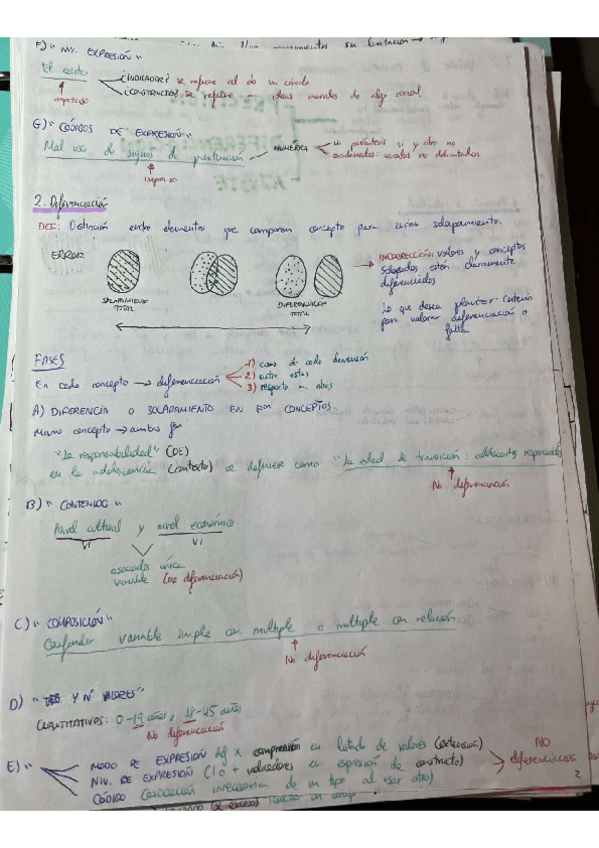 F) "NIV. EXPRESIÓN"
El estrés
impreciso
¿INDICADOR? se refiere al de un círculo
¿CONSTRUCTO? se refiere a ideas morales de algo social
G) "CÓDIGOS DE EXPRESIÓN"
Mal uso de signos de puntuación
impreciso
NUMÉRICA
paréntesis sí y otro no
coordenadas: escalas no delimitadas
2. Diferenciación
DEF: Distinción entre elementos que componen concepto para evitar solapamiento.
ERROR
SOLAPAMIENTO TOTAL
DIFERENCIACIÓN TOTAL
INCORRECCIÓN: valores y conceptos
solapados estén claramente
diferenciados
Lo que desea plantear: criterio
para valorar diferenciación o
falta
FASES
En cada concepto → diferenciación
1) cada dimensión
2) entre estas
3) respecto a otros
A) DIFERENCIA O SOLAPAMIENTO EN CONCEPTOS.
Mismo concepto → ambos
"La responsabilidad" (OE)
en la adolescencia (contexto) se definiese como "La edad de transición: adolescentes responsables
No diferenciación
B) "CONTENIDO"
Nivel cultural y nivel económico
VI
VI
asociados única
variable (no diferenciación)
C) "COMPOSICIÓN"
Confundir variable simple con multiple o multiple con relación.
No diferenciación
D) " Y Nº VALORES"
CUANTITATIVOS: 0-19 años, 18-45 años
No diferenciación
E)
MODO DE EXPRESIÓN x comprensión en listado de valores (extensión)
NIV. DE EXPRESIÓN (1 ó + indicadores en expresión de constructo)
CÓDIGO (asociación innecesaria de un tipo al usar otro)
NO
diferenciación
2